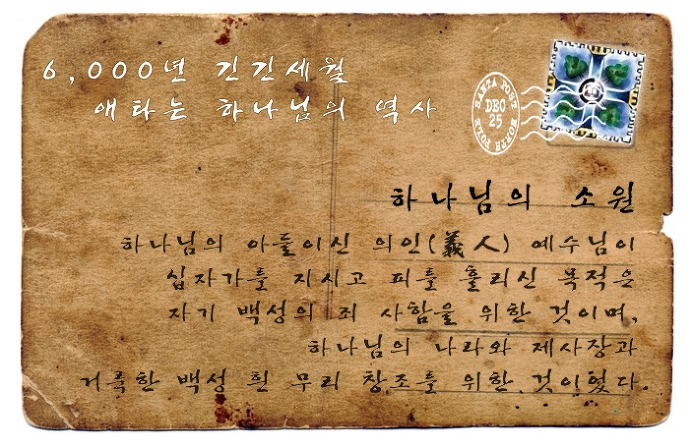 6,000년 긴긴세월
애타는 하나님의 역사
SANTA POST NORTH POLE
DEC
25
하나님의 소원
하나님의 아들이신 의인(義人) 예수님이
십자가를 지시고 피를 흘리신 목적은
자기 백성의 죄 사함을 위한 것이며,
하나님의 나라와 제사장과
거룩한 백성 흰 무리 창조를 위한 것이었다.